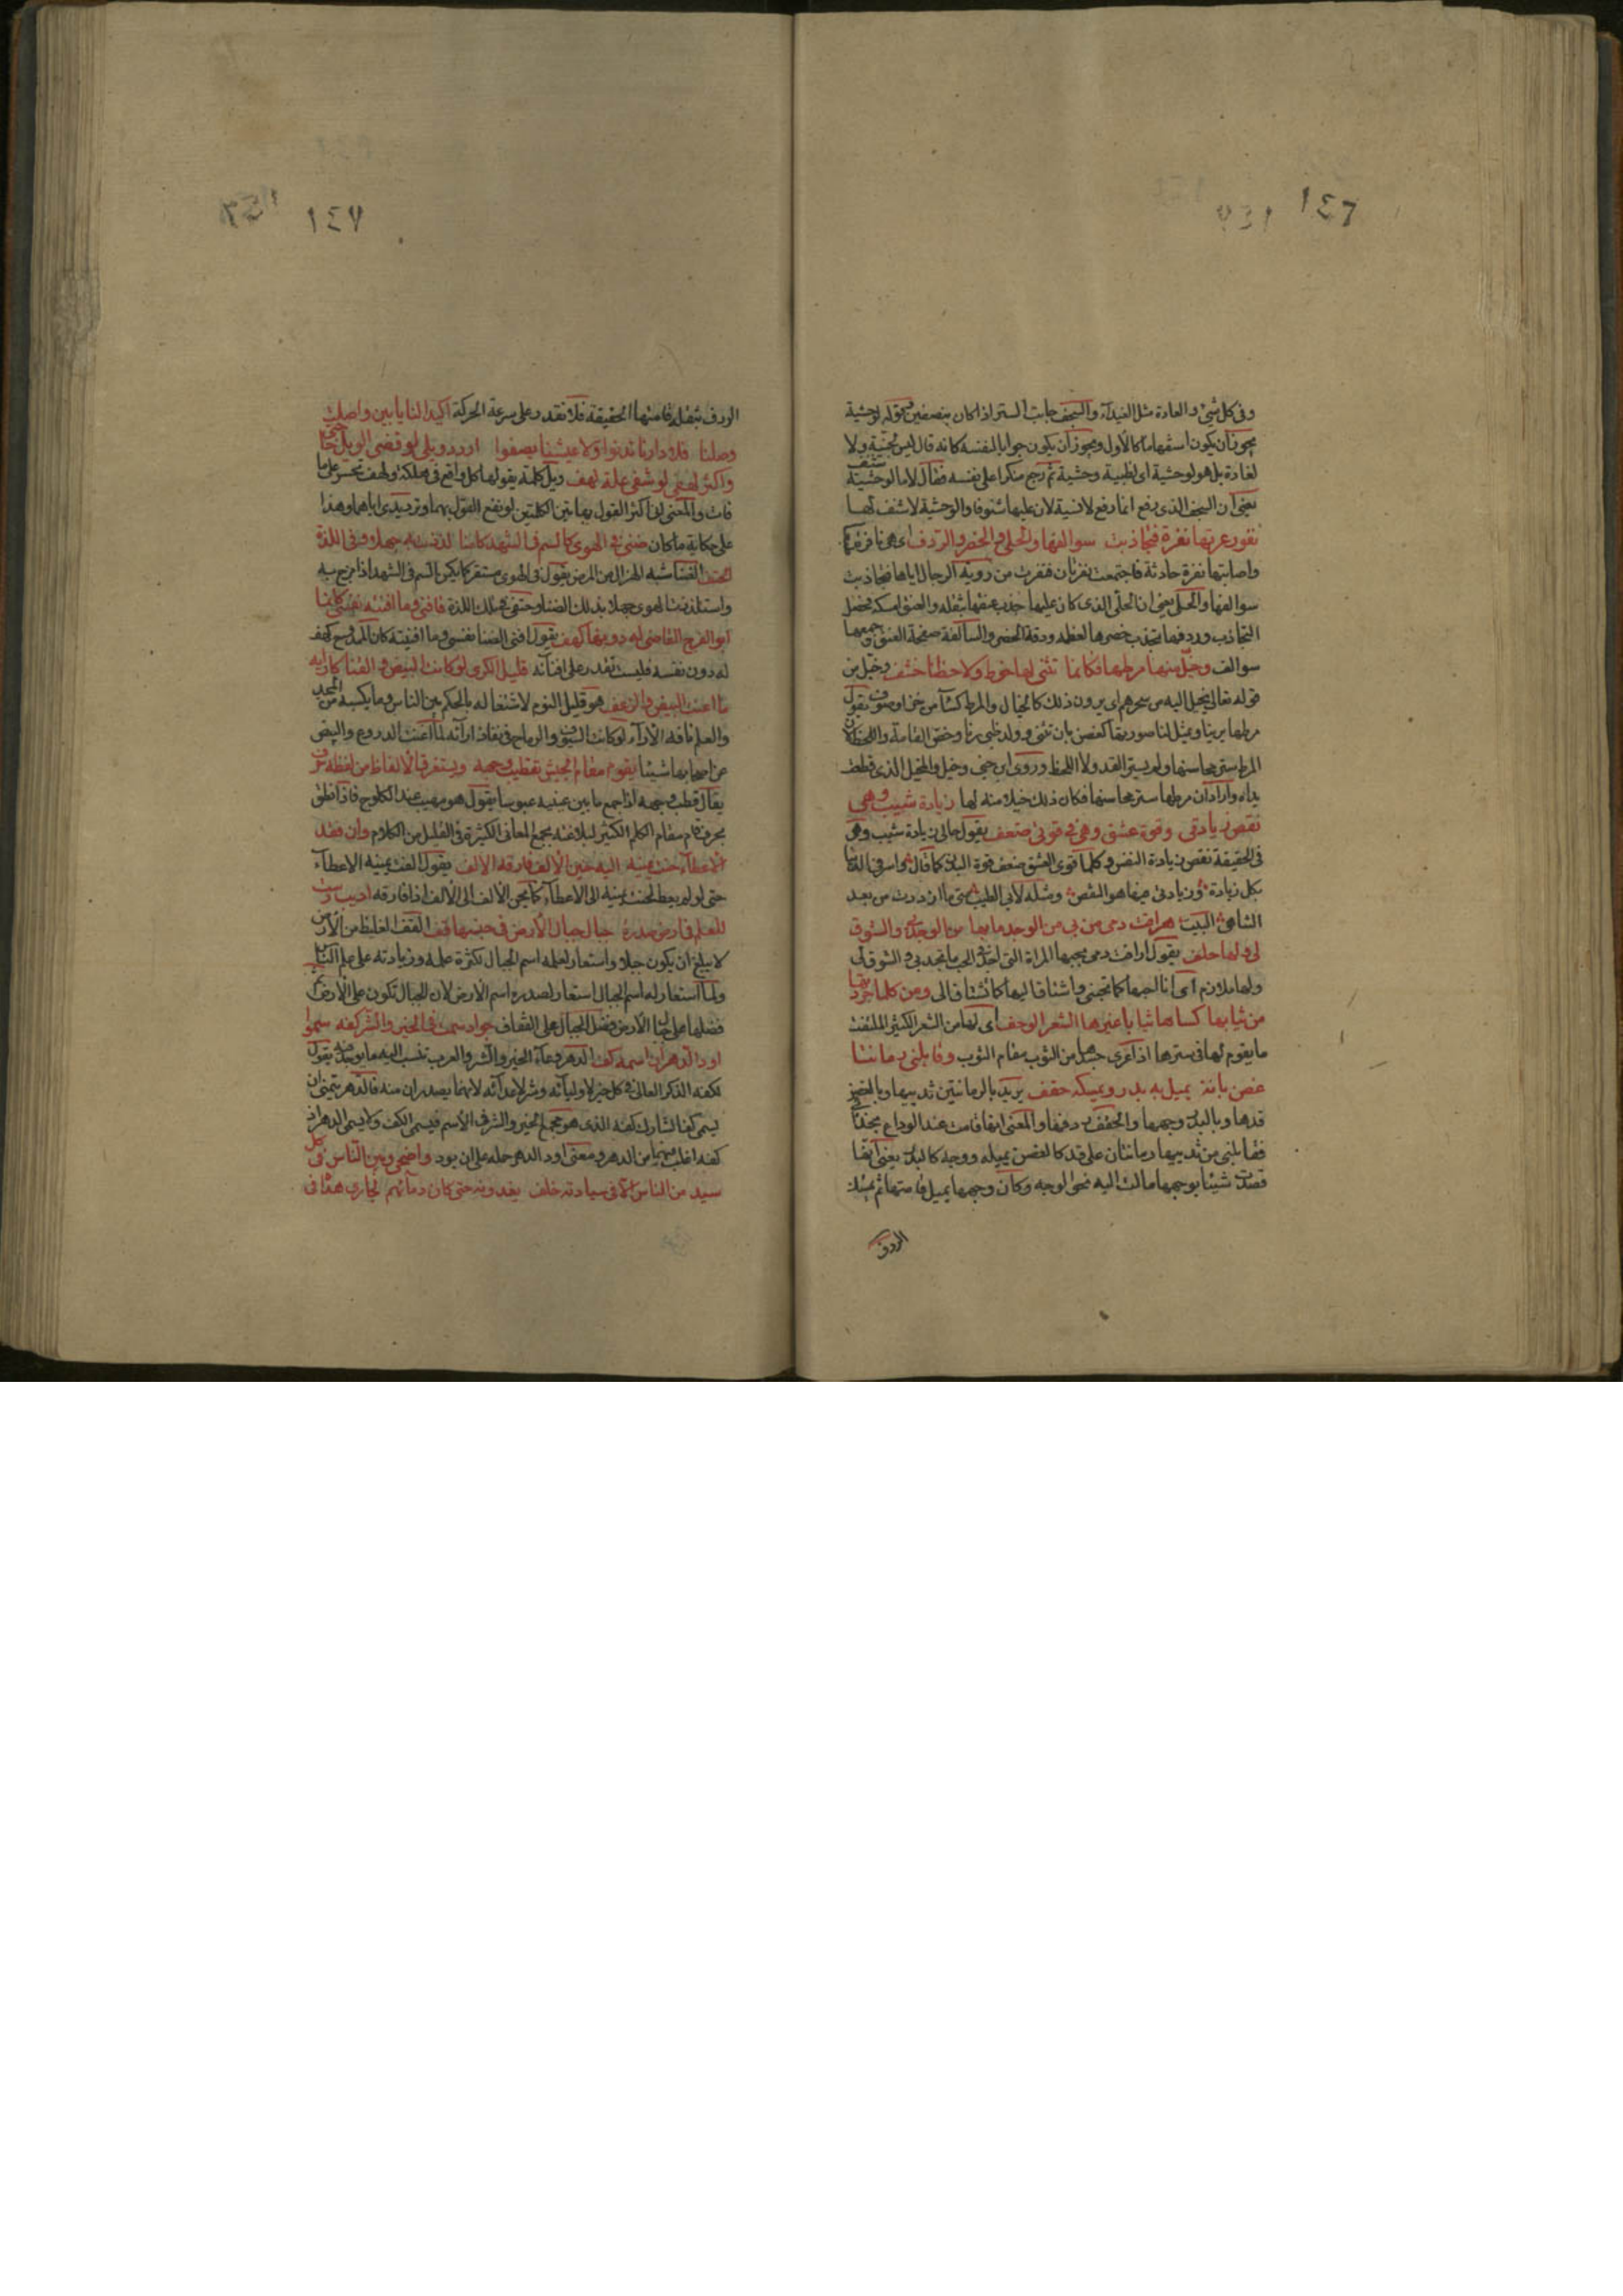 ١٤٦
وفى كل شئ والغادة مثل الغيداء والسجف جانب الستر اذا كان بنصفين وقوله لوحشية
يجوز ان يكون استفهاما كالأول ويجوز ان يكون جوابا لنفسه كانه قال ليس لجنية ولا
لغادة بل هو لوحشية اى لظبية وحشية ثم رجع منكرا على نفسه فقال لا ما لوحشية شنف
يعنى ان السجف الذى رفع انما رفع لانسية لان عليها شنوفا والوحشية لا شنف لها
نفور عرتها نفرة فتجاذبت سوالفها والحلى والخصر والردف اى هى نافرة
واصابتها نفرة حادثة فاجتمعت نفرتان فنفرت من روية الرجال اياها فتجاذبت
سوالفها والحلى يعنى ان الحلى الذى كان عليها جذب عنقها بثقله والعنق امسكه فحصل
التجاذب وردفها تجذب خصرها لعظمه ودقة الخصر والسالفة صفحة العنق وجمعها
سوالف وخيل منها مرطها فكانما تثنى لها خوط ولاحظنا خشف وخيل من
قوله تعالى يخيل اليه من سحرهم اى يرون ذلك كالخيال والمرط كساء من خز او صوف يقول
مرطها يرينا ويمثل لنا صورتها كغصن بان تثنى وولد ظبى رنا وخص القامة واللحظ لان
المرط ستر محاسنها ولم يستر القد ولا اللحظ وروى ابن جنى وخبل والمخبل الذى قطعت
يداه واراد ان مرطها ستر محاسنها فكان ذلك خبلا منه لها زيادة شيب وهى
نقص زيادتى وقوة عشق وهى فى قوتى ضعف يقول حالى زيادة شيب وهى
فى الحقيقة نقص زيادة النفس وكلما قوى العشق ضعف قوة البدن كما قال
بكل زيادة وزيادتى فيها هو النقص ومثله لابى الطيب متى ما ازددت من بعد
التناهى البيت هراقت دمى من بى من الوجد ما بها من الوجد بى والشوق
لى ولها حلف يقول اراقت دمى بحبها المراة التى اجد فى الحب ما تجد بى والشوق لى
ولها ملازم اى انا احبها كما تحبنى واشتاق اليها كما تشتاق الى ومن كلما جردتها
من ثيابها كساها ثيابا غيرها الشعر الوحف اى لها من الشعر الكثير الملتف
ما يقوم لها فى سترها اذا عرى جسمها من الثوب مقام الثوب وقابلنى رمانتا
غصن بانة يميل به بدر ويمسكه حقف يريد بالرمانتين ثدييها وبالغصن
قدها وبالبدر وجهها والحقف ردفها والمعنى انها قامت عند الوداع بحذائى
فقابلنى من ثدييها رمانتان على قد كالغصن يميله ووجه كالبدر يعنى انها
قصدت شيئا بوجهها مالت اليه نحو الوجه وكان وجهها يميل قامتها ثم يمسك
الردف
١٤٧
الردف بثقله قامتها الحقيقة فلا تقدر على سرعة الحركة اكيدا لنا يا بين واصلت
وصلنا فلا دارنا تدنو ولا عيشنا يصفو اردد ويلى لو قضى الويل حاجة
واكثر لهفى لو شفى غلة لهف ويل كلمة يقولها كل واقع فى مهلكة ولهف تحسر على ما
فات والمعنى انى اكثر القول بهاتين الكلمتين لو نفع القول بهما وترديدى اياهما وهذا
على حكاية ما كان ضنى فى الهوى كالسم فى الشهد كامنا لذذت به جهلا وفى اللذة
الحتف الضنا شبه الهزال من المرض يقول فى الهوى مستقر كما يكمن السم فى الشهد اذا مزج به
واستلذذت الهوى جهلا بذلك الضنا وحتفى فى تلك اللذة فافنى وما افنته نفسى كانما
ابو الفرج القاضى له دونها كهف يقول افنى الضنا نفسى وما افنيته كان الممدوح كهف
له دون نفسه فليست تقدر على افنائه قليل الكرى لو كانت البيض والقنا كارائه
ما اغنت البيض والزغف هو قليل النوم لاشتغاله بالحكم بين الناس وما يكسبه من المجد
والعلم نافذ الآراء لو كانت السيوف والرماح فى نفاذ ارائه لما اغنت الدروع والبيض
عن اصحابها شيئا يقوم مقام الجيش تقطيب وجهه ويستغرق الالفاظ من لفظه حرف
يقال قطب وجهه اذا جمع ما بين عينيه عبوسا يقول هو مهيب عند الكلوح فاذا نطق
بحرف قام مقام الكلم الكثير لبلاغته يجمع المعانى الكثيرة فى القليل من الكلام وان فقد
الاعطاء حنت يمينه اليه حنين الالف فارقه الالف يقول الفت يمينه الاعطاء
حتى لو لم يعط لحنت يمينه الى الاعطاء كما يحن الالف الى الالف اذا فارقه اديب رست
للعلم فى ارض صدره جبال جبال الارض فى جنبها قف القف الغليظ من الارض
لا يبلغ ان يكون جبلا واستعار لعلمه اسم الجبال لكثرة علمه وزيادته على علم الناس
ولما استعار له اسم الجبال استعار لصدره اسم الارض لان الجبال تكون على الارض ثم
فضلها على جبال الارض فضل الجبال على القفاف جواد سمت فى الخير والشر كفه سموا
اود الدهر ان اسمه كف الدهر وعاء الخير والشر والعرب تنسب اليه ما يوجد فيه يقول
لكفه الذكر العالى فى كل خير لاوليائه وشر لاعدائه لانهما يصدران منه فالدهر يتمنى ان
يسمى كفا ليشارك كفه الذى هو مجمع الخير والشر فى الاسم فيسمى الكف ولا يسمى الدهر اذ
كفه اغلب فيهما من الدهر ومعنى اود الدهر حمله على ان يود واضحى وبين الناس فى كل
سيد من الناس الا فى سيادته خلف يفدونه حتى كان دمائهم لجارى هواه فى